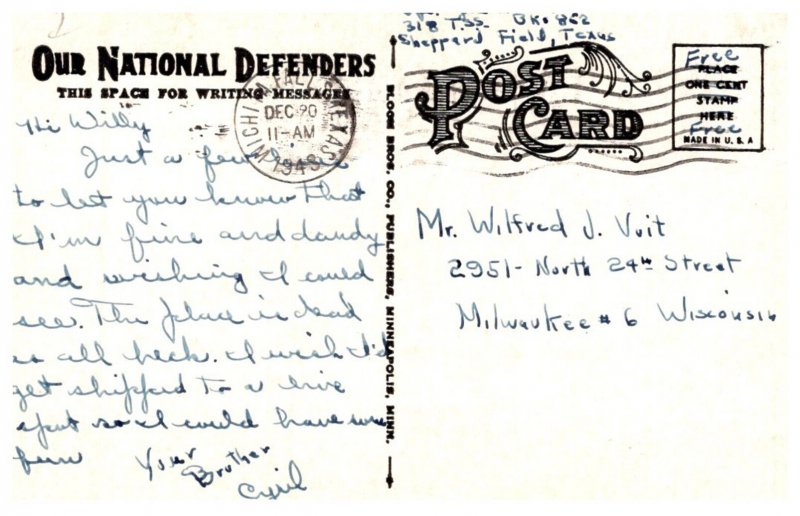 OUR NATIONAL DEFENDERS
THIS SPACE FOR WRITING MESSAGES
Hi Willy
Just a few
to let you know that
I'm fine and dandy
and wishing I could
see. The place is dead
as all heck. I wish I'd
get shipped to a live
spot so I could have some
fun
Your
Brother
Cyril
WICHITA FALLS TEXAS
DEC 20
11-AM
1943
BLOOM BROS. CO., PUBLISHERS, MINNEAPOLIS, MINN.
318 T.SS. BK. 862
Sheppard Field, Texas
POST CARD
Free
PLACE
ONE CENT
STAMP
HERE
Free
MADE IN U.S.A
Mr. Wilfred J. Vuit
2951- North 24th Street
Milwaukee # 6 Wisconsin